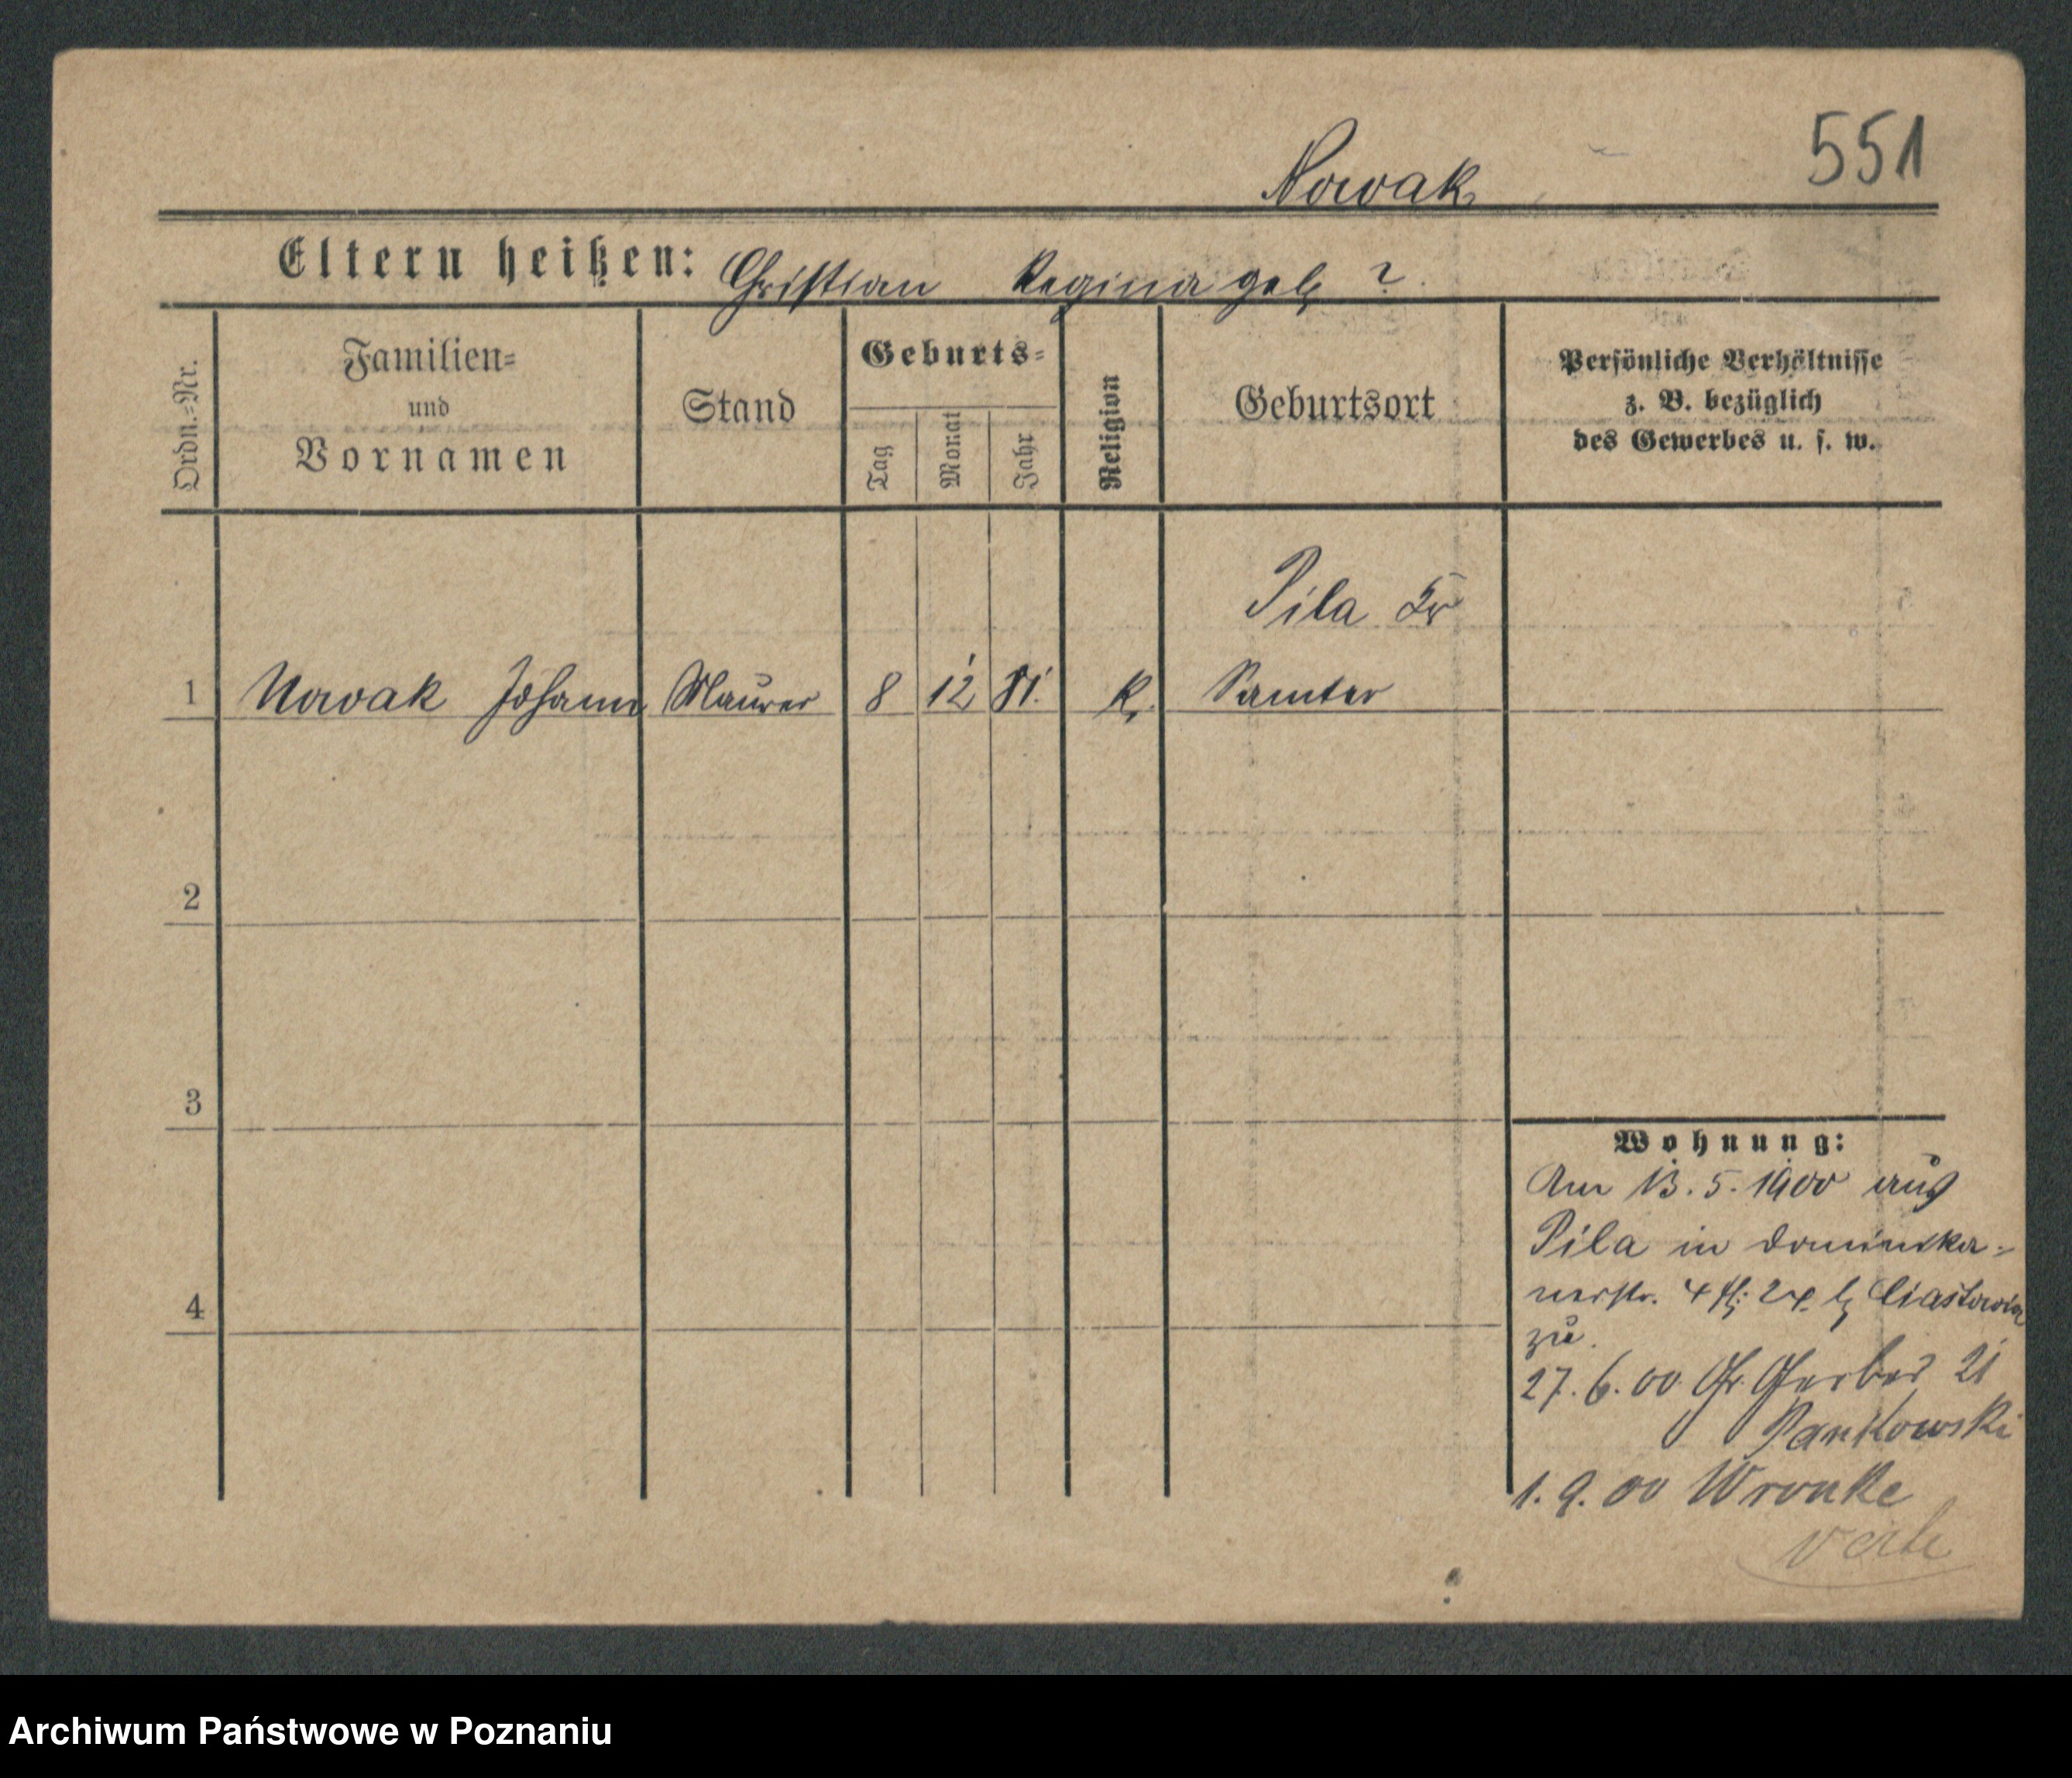 551
Nowak
Eltern heißen: Christian Regina geb ?
Ordn.=Nr.
Familien=
und
Vornamen
Stand
Geburts=
Tag
Monat
Jahr
Religion
Geburtsort
Persönliche Verhältnisse
z. B. bezüglich
des Gewerbes u. s. w.
Pila Kr
1 Nowak Johann Maurer 8 12 81. k. Samter
2
3
4
Wohnung:
Am 13.5.1900 aus
Pila in Dominika-
nerstr. 4 b
zu.
27.6.00 Gr. Gerber 21
Pankowski
1.9.00 Wronke
Archiwum Państwowe w Poznaniu